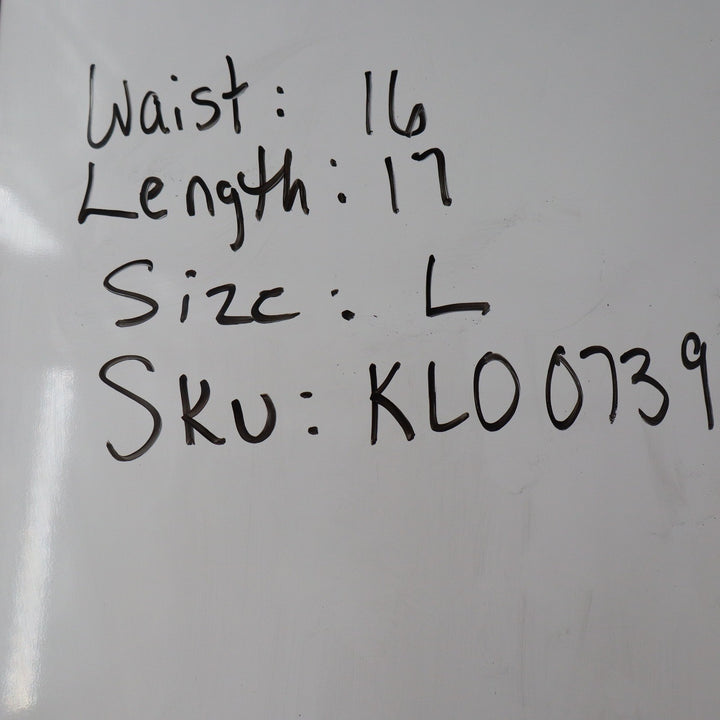 Waist: 16
Length: 17
Size: L
SKU: KLO0739